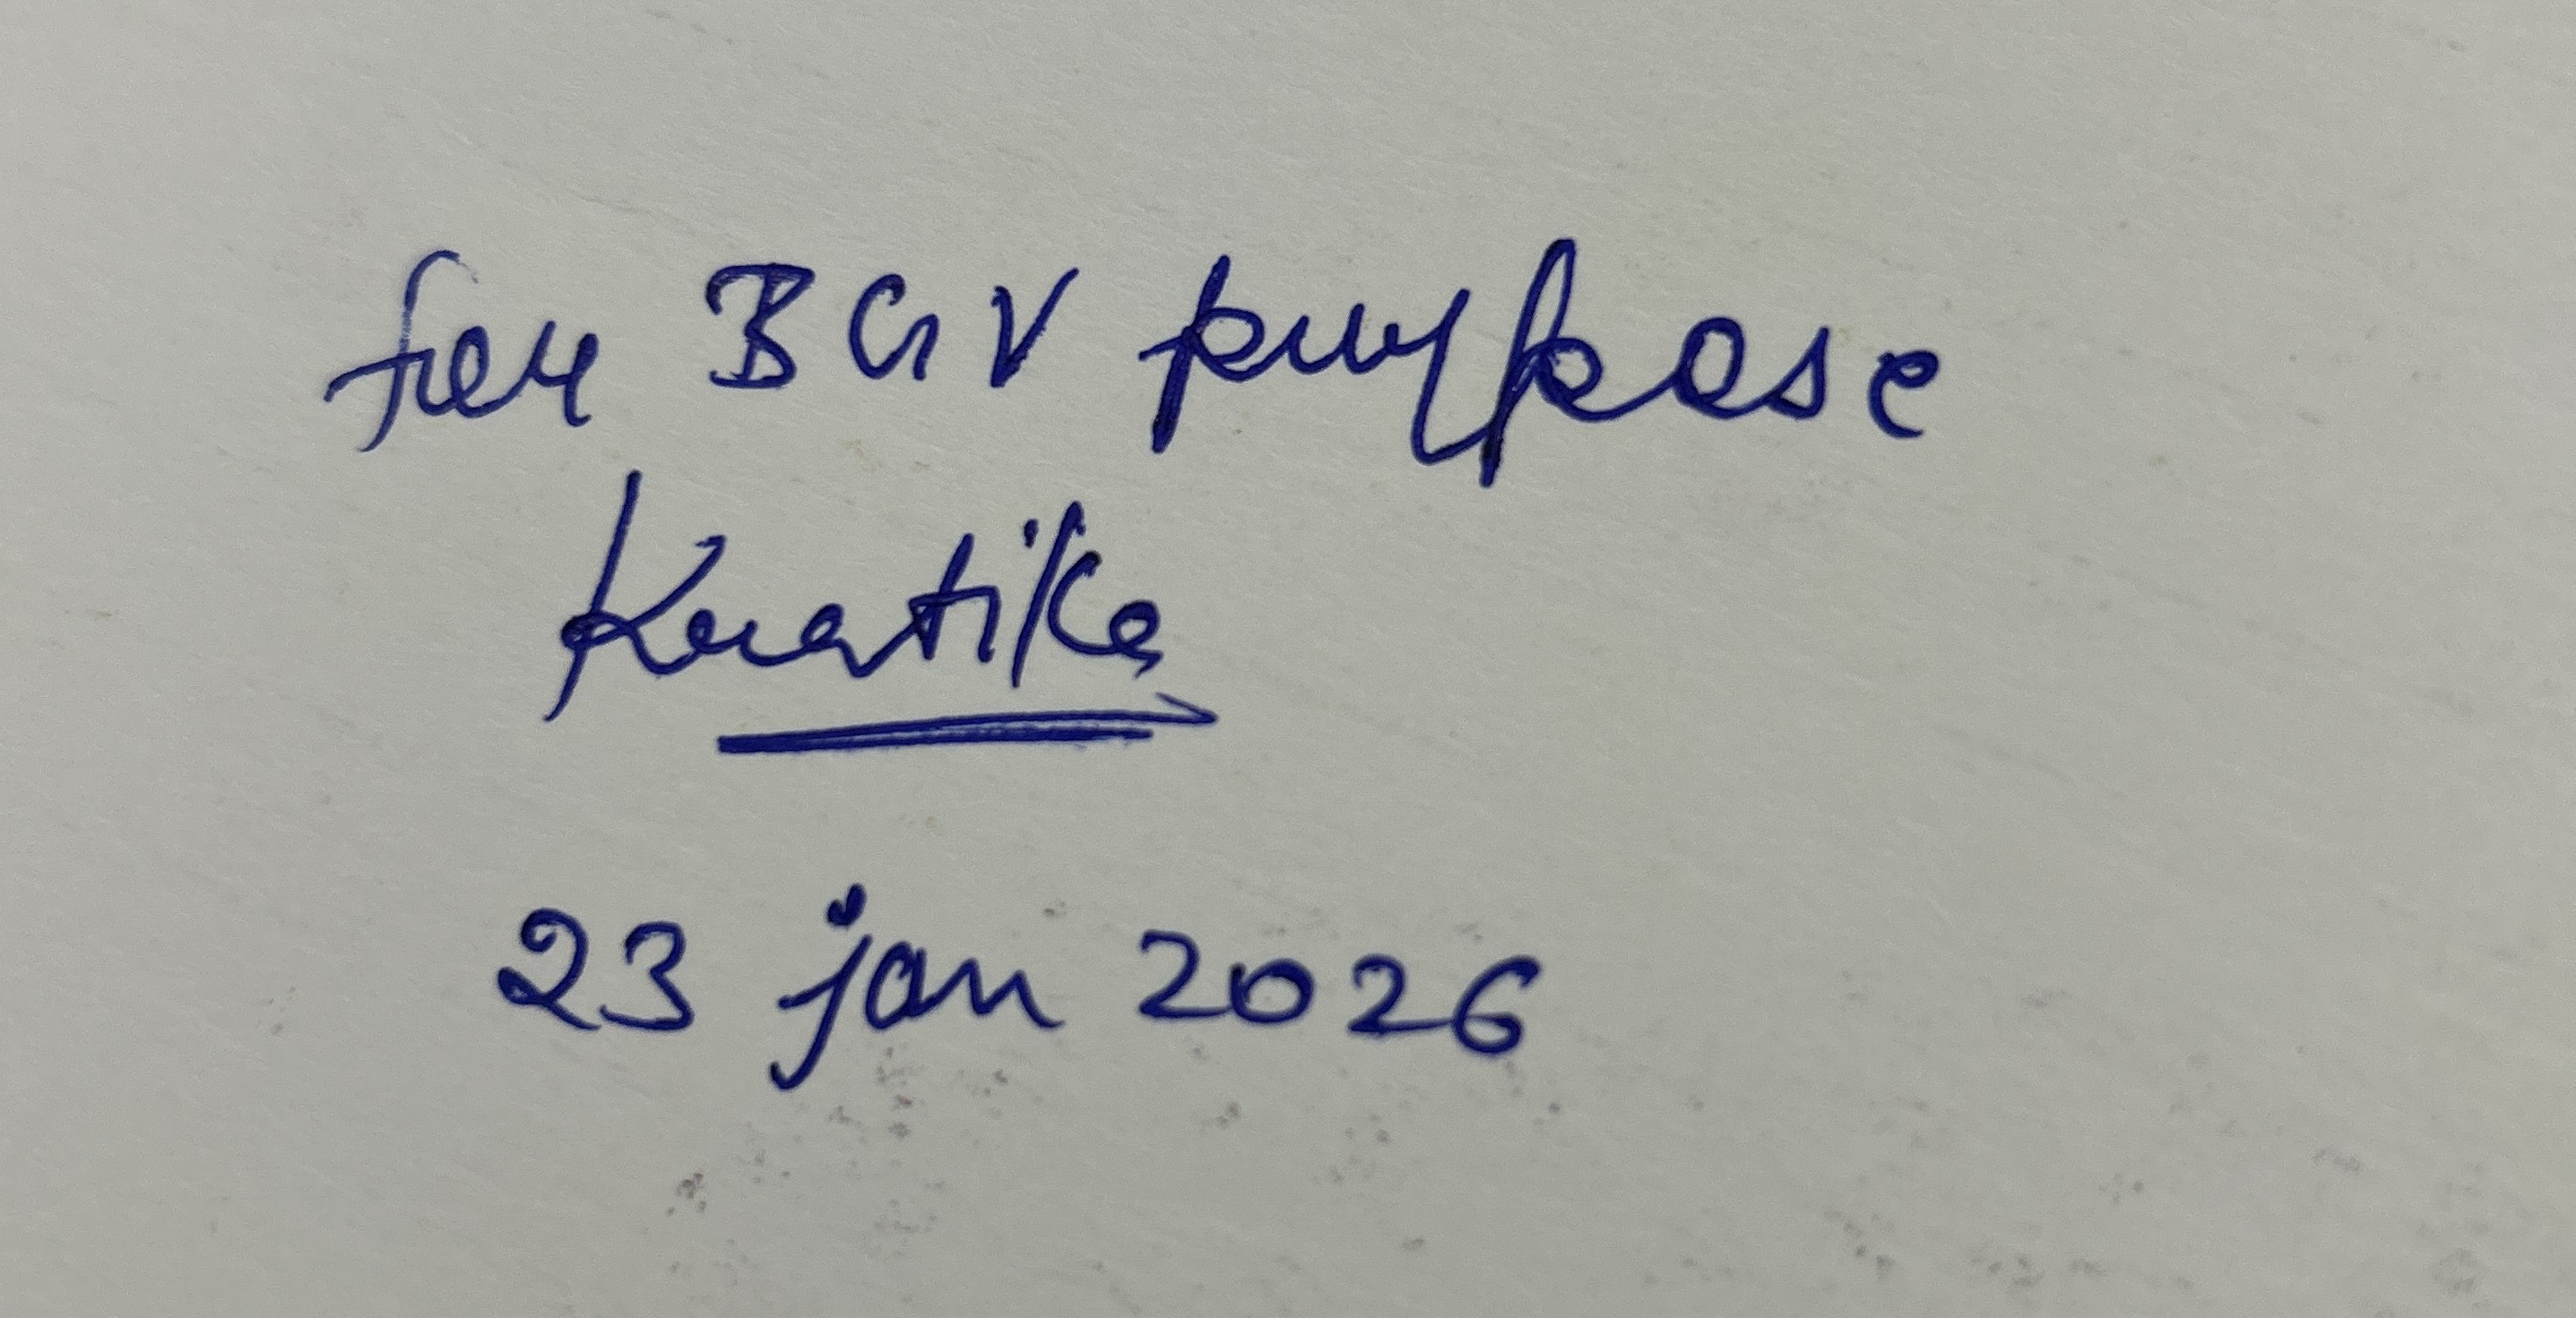 for BGV purpose
Kratika
23 jan 2026